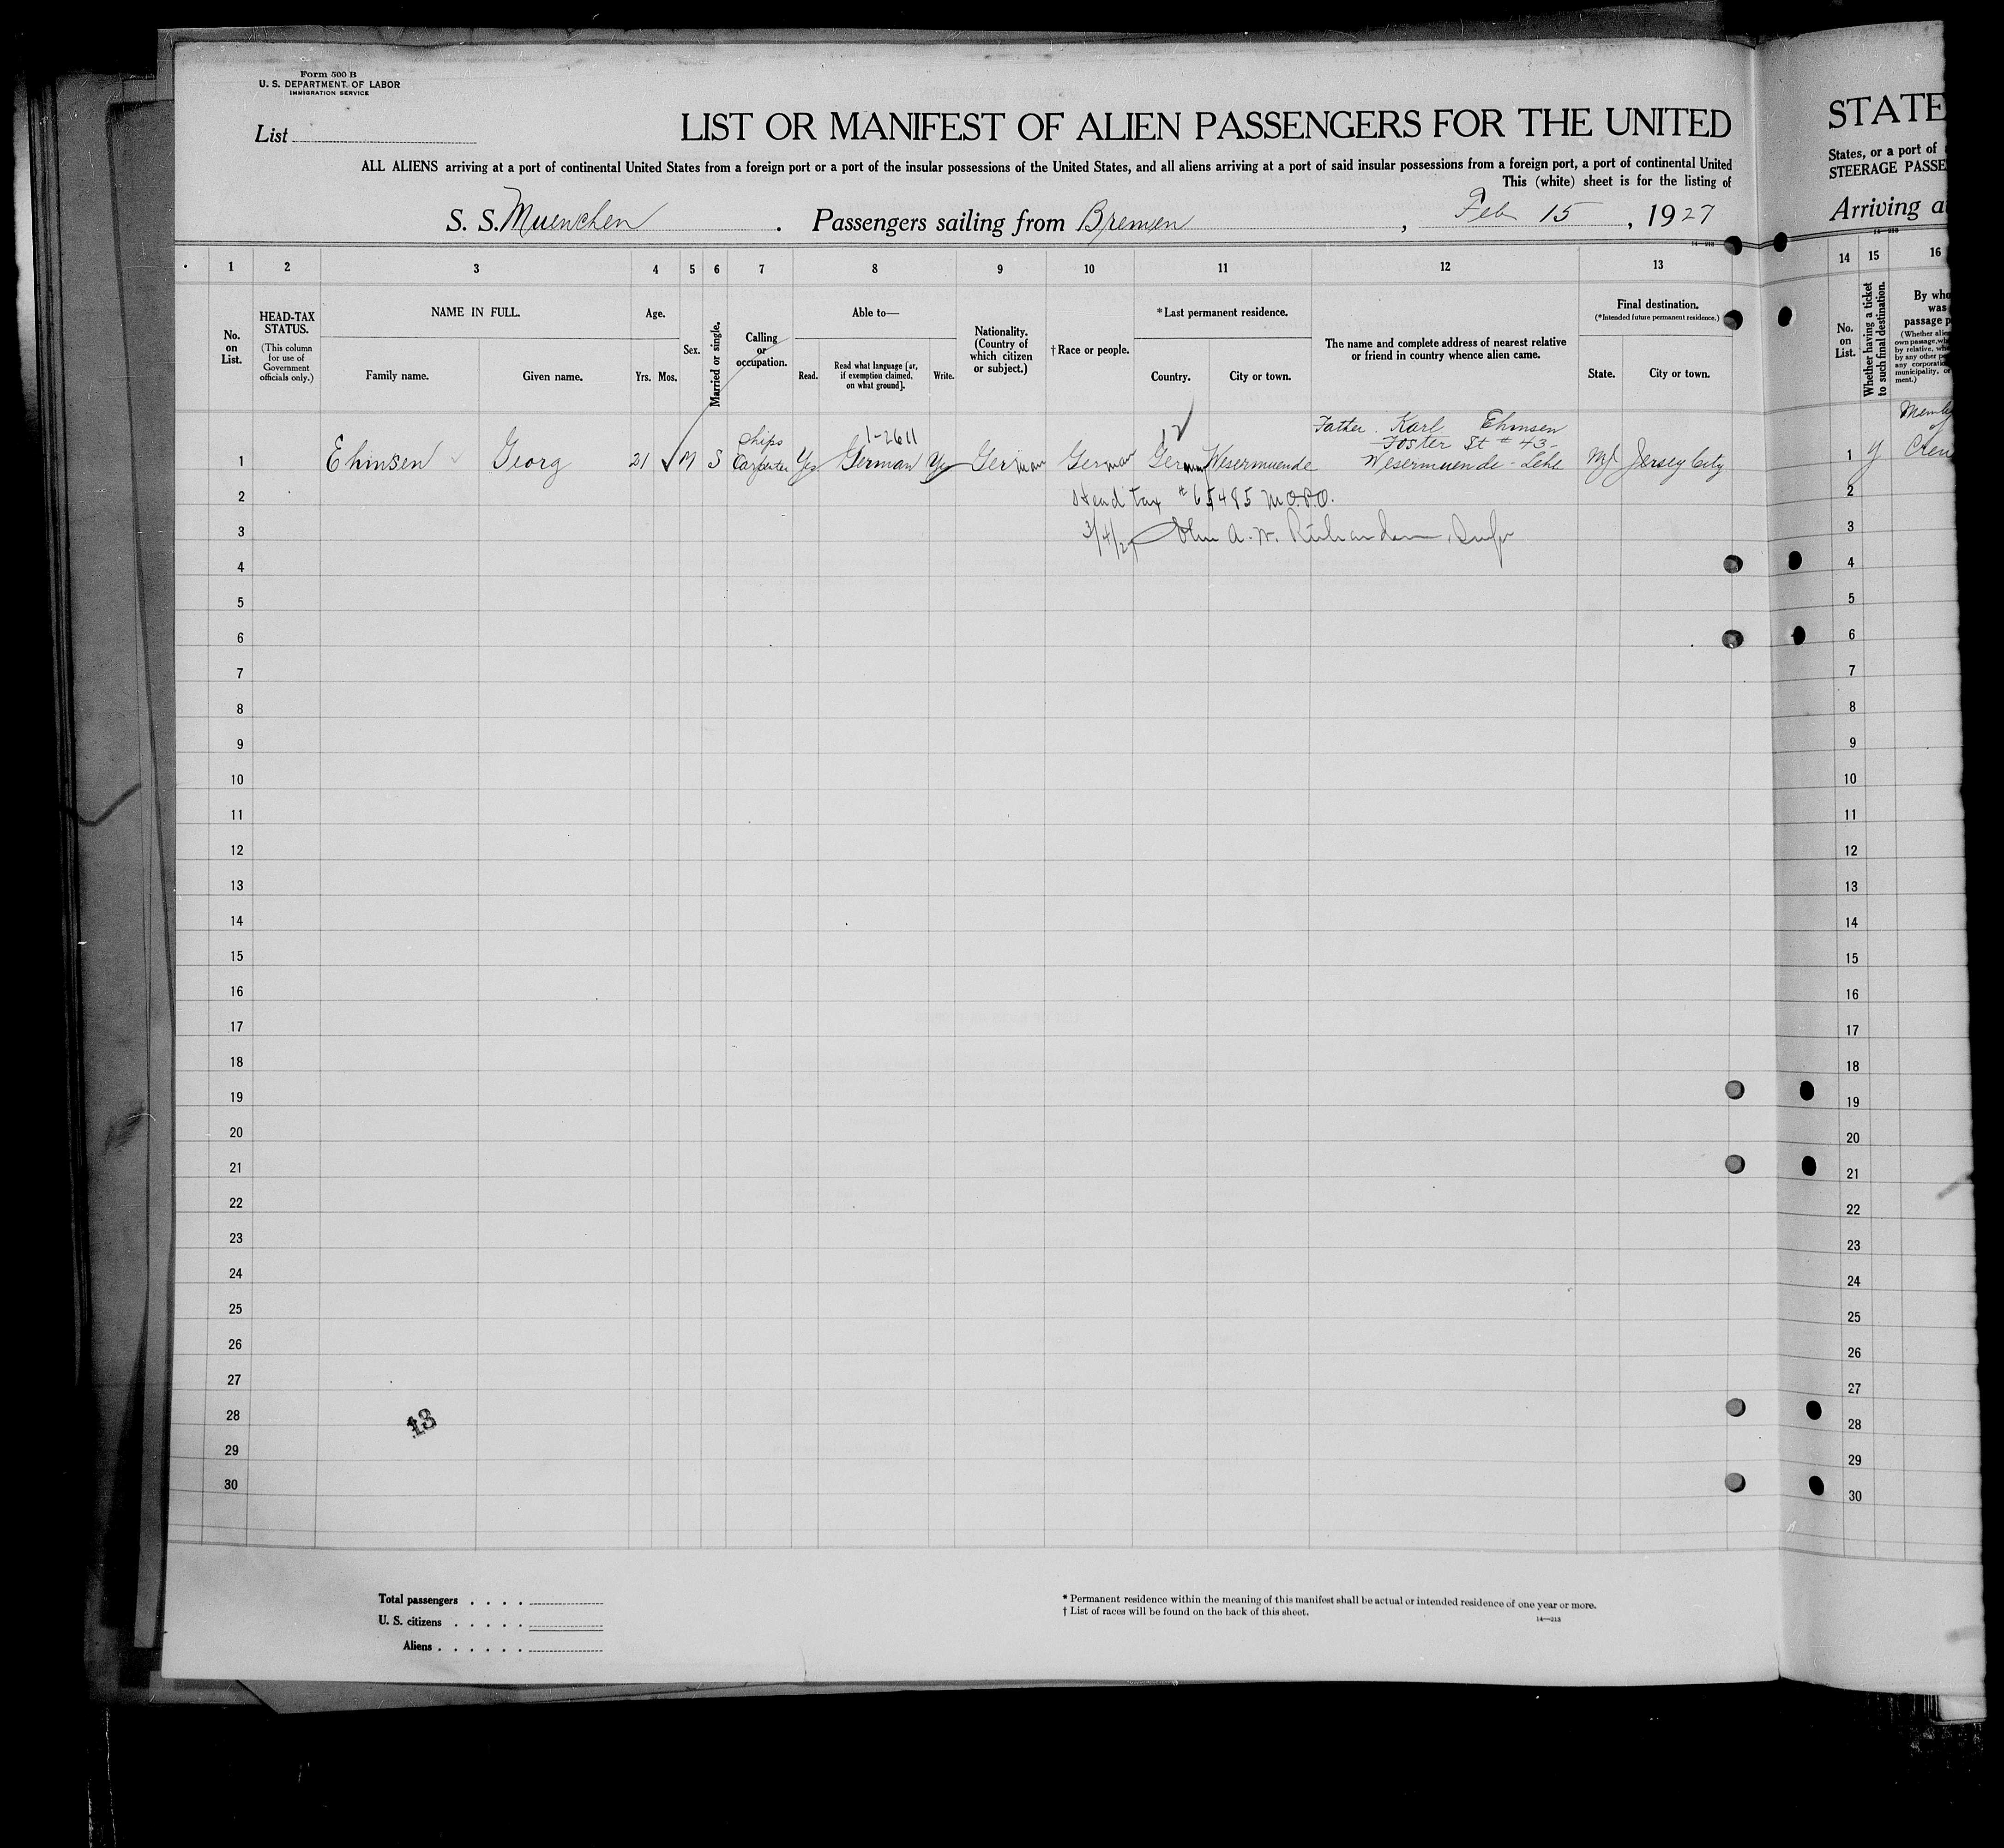 Form 500 B
U. S. DEPARTMENT OF LABOR
IMMIGRATION SERVICE
List
LIST OR MANIFEST OF ALIEN PASSENGERS FOR THE UNITED
ALL ALIENS arriving at a port of continental United States from a foreign port or a port of the insular possessions of the United States, and all aliens arriving at a port of said insular possessions from a foreign port, a port of continental United
This (white) sheet is for the listing of
S. S. Muenchen . Passengers sailing from Bremen , Feb 15 , 1927
14-213
1 2 3 4 5 6 7 8 9 10 11 12 13
No. on List.
HEAD-TAX STATUS.
(This column for use of Government officials only.)
NAME IN FULL.
Family name. Given name.
Age.
Yrs. Mos.
Sex.
Married or single.
Calling or occupation.
Able to—
Read. Read what language [or, if exemption claimed, on what ground]. Write.
Nationality. (Country of which citizen or subject.)
† Race or people.
* Last permanent residence.
Country. City or town.
The name and complete address of nearest relative or friend in country whence alien came.
Final destination.
(*Intended future permanent residence.)
State. City or town.
1-2611
Father. Karl Ehmsen
Foster St # 43-
Wesermuende - Lehe
1 Ehmsen Georg 21 M S Ships Carpenter Yes German Yes German German Germany Wesermuende NJ Jersey City
2 Head tax # 65485
3 3/4/27 A. W. Richardson, Insp
4
5
6
7
8
9
10
11
12
13
14
15
16
17
18
19
20
21
22
23
24
25
26
27
28
29
30
13
Total passengers
U. S. citizens
Aliens
* Permanent residence within the meaning of this manifest shall be actual or intended residence of one year or more.
† List of races will be found on the back of this sheet.
14-213
STATE
States, or a port of
STEERAGE PASSE
Arriving a
14-213
14 15 16
No. on List.
Whether having a ticket to such final destination.
By who
was
passage p
1 y Crew
2
3
4
5
6
7
8
9
10
11
12
13
14
15
16
17
18
19
20
21
22
23
24
25
26
27
28
29
30